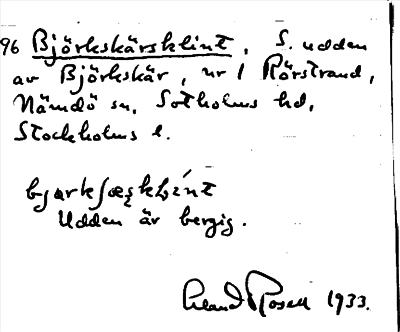 96 Björkskärsklint, S. udden
av Björkskär, nr 1 Rörstrand,
Nämdö sn, Sotholms hd,
Stockholms l.
Udden är bergig.
Erland Rosell 1933.